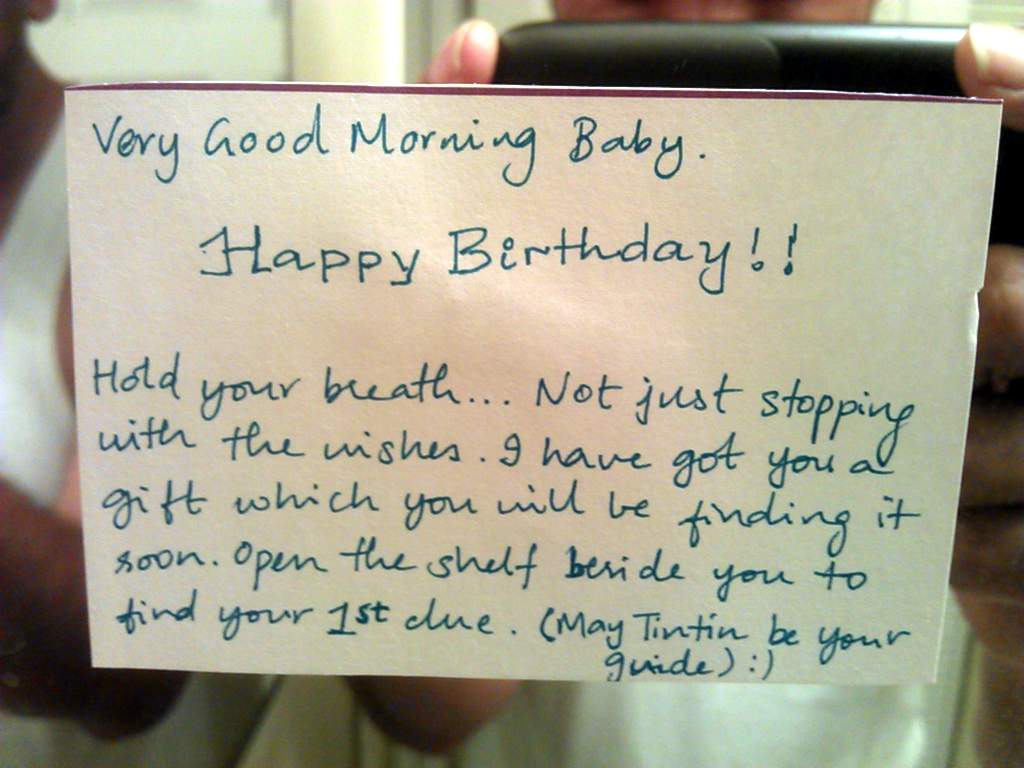 Very Good Morning Baby.
Happy Birthday!!
Hold your breath... Not just stopping
with the wishes. I have got you a
gift which you will be finding it
soon. Open the shelf beside you to
find your 1st clue. (May Tintin be your
guide) :)